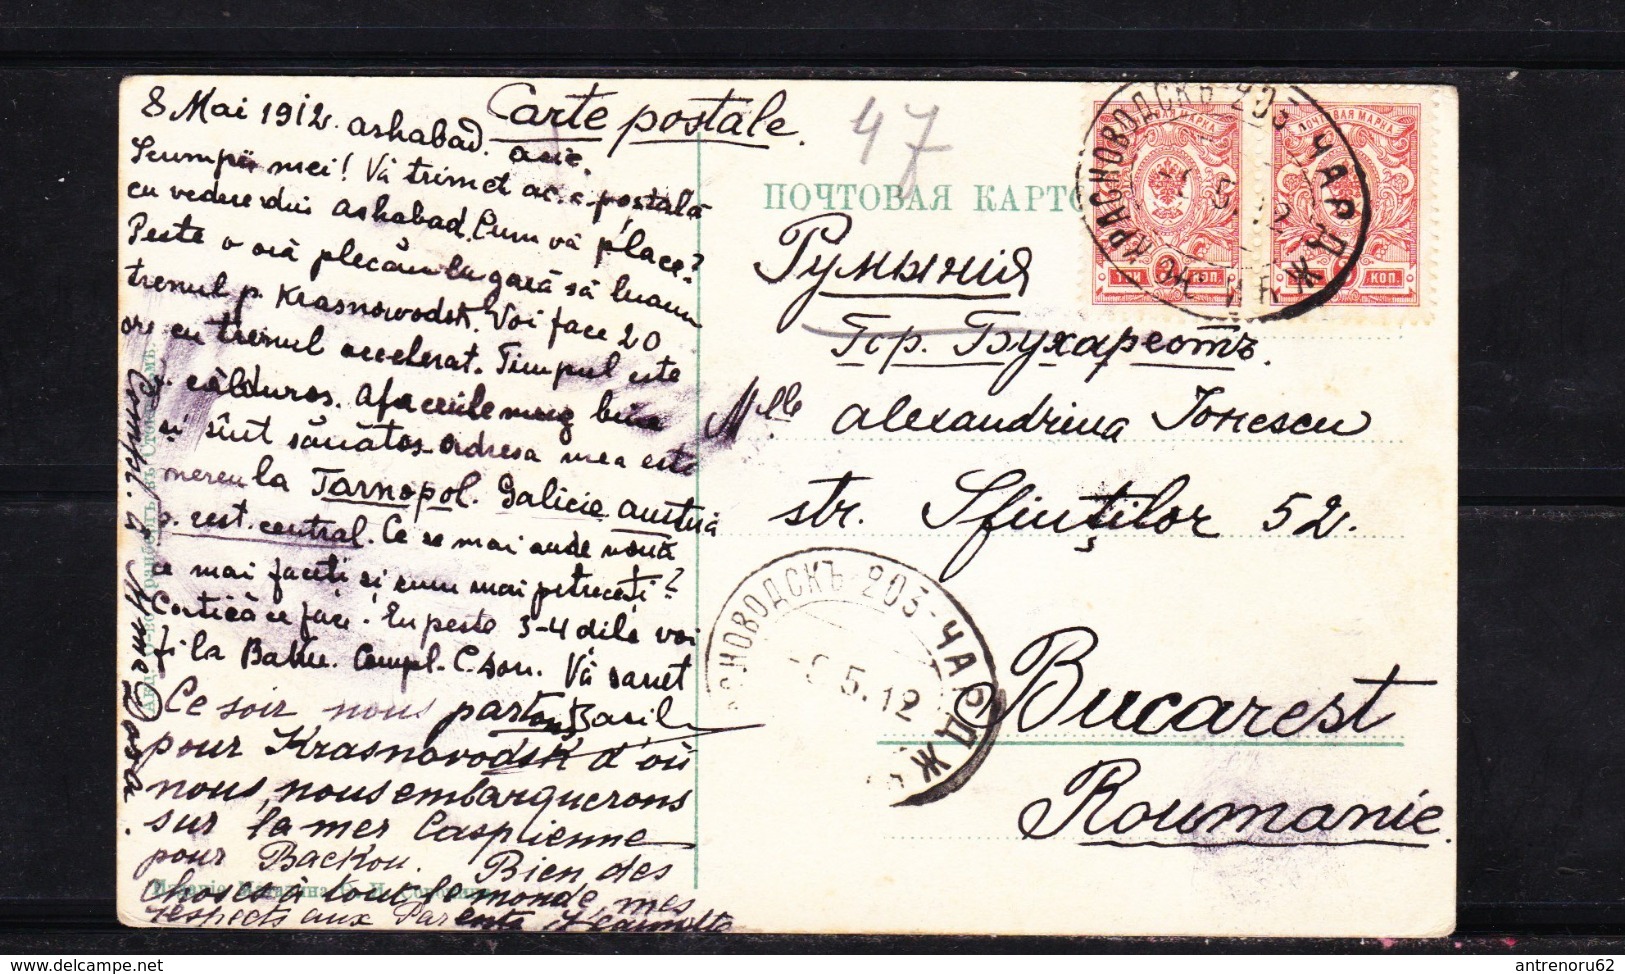 8 Mai 1912. Ashabad. Asie.
Carte postale.
47
ПОЧТОВАЯ КАРТО
Scumpii mei! Vă trimet postală
cu vederea Ashabad. Cum vă place?
Peste o oră plecăm la gară să luăm
trenul p. Krasnowodsk. Voi face 20
ore cu trenul accelerat. Timpul este
călduros. Afacerile merg bine
și sînt sănătos. Adresa mea este
mereu la Tarnopol. Galicie Austria
p. rest. central. Ce se mai aude nouă
ce mai faceți și cum mai petreceți?
Costică ce face? Eu peste 3-4 dile voi
fi la Baku. Compl. C. Vă sarut
Basil
Compl. d. Mme Rosa.
Ce soir nous partons
pour Krasnovodsk d'où
nous nous embarquerons
sur la mer Caspienne
pour Backou. Bien des
choses à tout le monde, mes
respects aux Parents
Румынія
Гор. Бухарестъ.
Mlle Alexandrina Ionescu
str. Sfinților 52.
Bucarest
Roumanie.
ПОЧТОВАЯ МАРКА
ТРИ 3 КОП.
КОП.
КРАСНОВОДСКЪ 203 ЧАРДЖУЙ
5.12
СНОВОДСКЪ 203-ЧАРДЖ
5.12
delcampe.net
antrenoru62